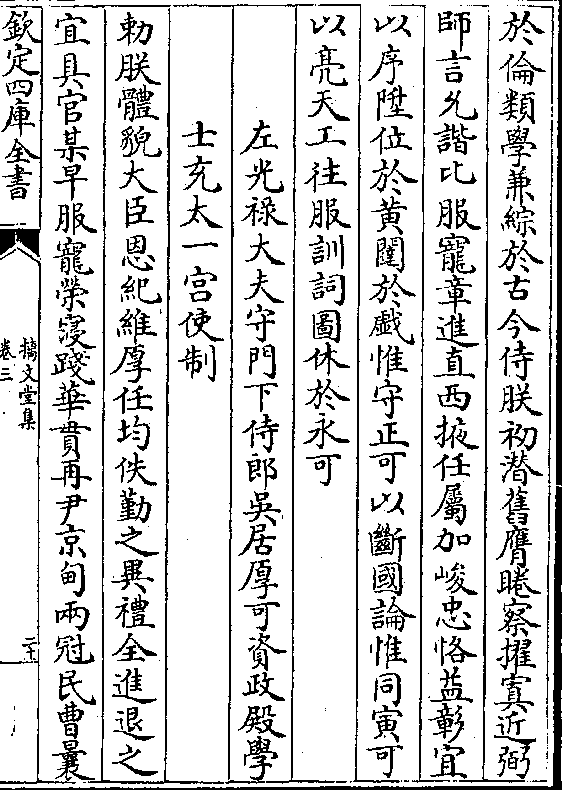 於倫類學兼綜於古今侍朕初潛舊膺睠察擢寘近弼
師言允諧比服寵章進直西掖任屬加峻忠恪益彰宜
以序陞位於黄闥於戲惟守正可以斷國論惟同寅可
以亮天工往服訓詞圖休於永可
左光祿大夫守門下侍郎吳居厚可資政殿學
士充太一宮使制
勅朕體貌大臣恩紀維厚任均佚勤之異禮全進退之
宜具官某早服寵榮寖踐華貫再尹京甸兩冠民曹曩
欽定四庫全書
摛文堂集
卷三